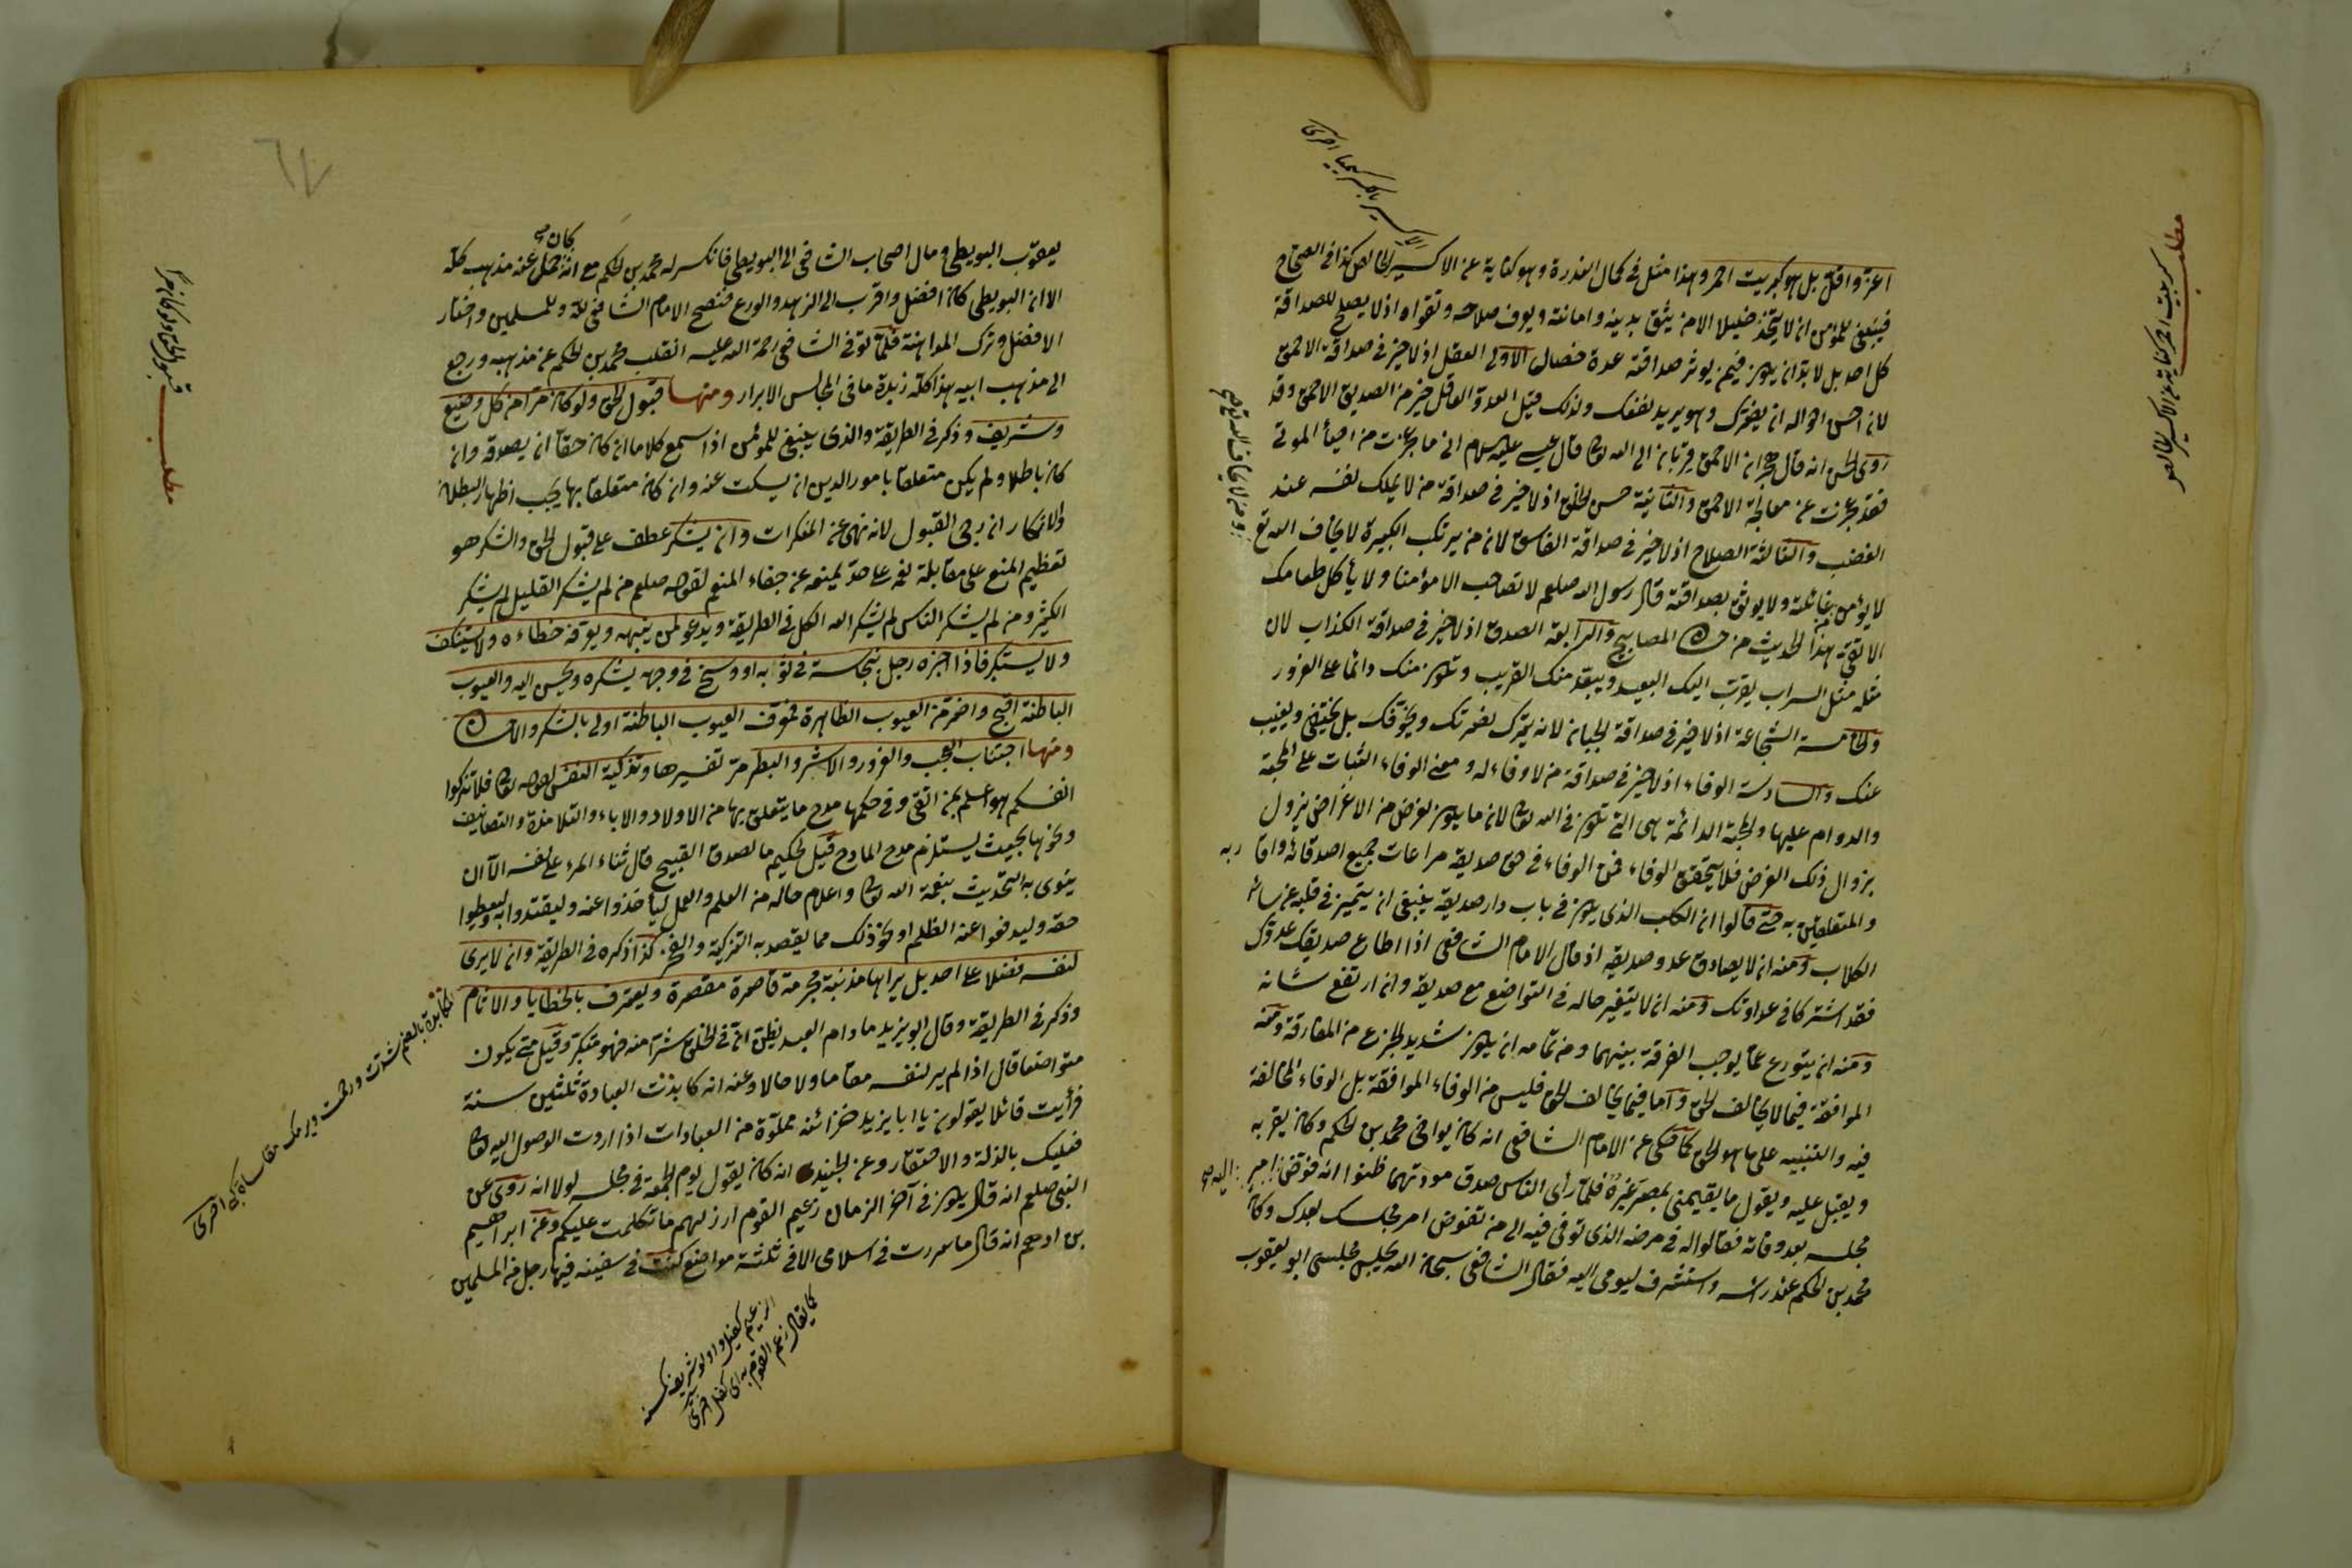 اعز واقل بل هو كبريت احمر وهذا مثل فى كمال الندرة وهو كناية عن الاكسير الخالص كذا فى الصحاح
فينبغى للمؤمن ان لا يتخذ خليلا الا من يثق بدينه وامانته ويعرف صلاحه وتقواه اذ لا يصلح للصداقة
كل احد بل لا بد ان يكون فيمن يؤثر صداقته عدة خصال الاولى العقل اذ لا خير فى صداقة الاحمق
لان احسن احواله ان يضرك وهو يريد نفعك ولذلك قيل العدو العاقل خير من الصديق الاحمق وقد
روى الحسن انه قال هجران الاحمق قربان الى الله تعالى قال عيسى عليه السلام انى ما عجزت من احياء الموتى
فقد عجزت عن معالجة الاحمق والثانية حسن الخلق اذ لا خير فى صداقة من لا يملك نفسه عند
الغضب والثالثة الصلاح اذ لا خير فى صداقة الفاسق لان من يرتكب الكبيرة لا يخاف الله تع
لا يؤمن غائلته ولا يوثق بصداقته قال رسول الله صلعم لا تصاحب الا مؤمنا ولا يأكل طعامك
الا تقى هذا الحديث من حسان المصابيح والرابعة الصدق اذ لا خير فى صداقة الكذاب لان
مثله مثل السراب يقرب اليك البعيد ويبعد منك القريب وتكون منك دائما على الغرور
والخامسة الشجاعة اذ لا خير فى صداقة الجبان لانه يترك نصرتك ويخوفك بل يختفى ويغيب
عنك والسادسة الوفاء اذ لا خير فى صداقة من لا وفاء له ومعنى الوفاء الثبات على المحبة
والدوام عليها والمحبة الدائمة هى التى تكون فى الله تعالى لان ما يكون لغرض من الاغراض يزول
بزوال ذلك الغرض فلا يتحقق الوفاء فمن الوفاء فى حق صديقه مراعات جميع اصدقائه واقاربه
والمتعلقين به حتى قالوا ان الكلب الذى يكون فى باب دار صديقه ينبغى ان يتميز فى قلبه عن سائر
الكلاب ومنه ان لا يصادق عدو صديقه اذ قال الامام الشافعى اذا اطاع صديقك عدوك
فقد اشتركا فى عداوتك ومنه ان لا يتغير حاله فى التواضع مع صديقه وان ارتفع شانه
ومنه ان يتورع عما يوجب الفرقة بينهما ومن تمامه ان يكون شديد الجزع من المفارقة ومنه
الموافقة فيما لا يخالف الحق واما فيما يخالف الحق فليس من الوفاء الموافقة بل الوفاء المخالفة
فيه والتنبيه على ما هو الحق كما حكى عن الامام الشافعى انه كان يواخى محمد بن الحكم وكان يقربه
ويقبل عليه ويقول ما يقيمنى بمصر غيره فلما رأى الناس صدق مودتهما ظنوا انه فوض امر اليه
مجلسه بعد وفاته فقالوا له فى مرضه الذى توفى فيه الى من تفوض امر مجلسك بعدك وكان
محمد بن الحكم عند رأسه واستشرف ليومى اليه فقال الشافعى سبحان الله يجلس مجلسى ابو يعقوب
الاكسير بالكسر كيميا اخرى
مطلب كبريت احمر كناية عن الاكسير الخالص
ومن لا يخاف الله تع صح
يعقوب البويطى ومال اصحاب الشافعى الى البويطى فانكسر له محمد بن الحكم مع انه كان حمل عنه مذهب كله
الا ان البويطى كان افضل واقرب الى الزهد والورع فنصح الامام الشافعى لله وللمسلمين واختار
الافضل وترك المداهنة فلما توفى الشافعى رحمة الله عليه انقلب محمد بن الحكم عن مذهبه ورجع
الى مذهب ابيه هذا كله زبدة ما فى المجالس الابرار ومنها قبول الحق ولو كان مرا من كل وضيع
وشريف وذكر فى الطريقة والذى ينبغى للمؤمن اذا سمع كلاما ان كان حقا ان يصدقه وان
كان باطلا ولم يكن متعلقا بامور الدين ان يسكت عنه وان كان متعلقا بها يجب اظهار البطلان
والانكار ان رجى القبول لانه نهى عن المنكرات وان يشكر عطف على قبول الحق والشكر هو
تعظيم المنعم على مقابلة نعمه على حد يمنعه عن جفاء المنعم لقوله صلعم من لم يشكر القليل لم يشكر
الكثير ومن لم يشكر الناس لم يشكر الله الكل فى الطريقة ويدعو لمن ينبهه ويعرفه خطاءه ولا يستنكف
ولا يستكبر فاذا اخبره رجل بنجاسة فى ثوبه او وسخ فى وجهه يشكره ويحسن اليه والعيوب
الباطنة اقبح واضر من العيوب الظاهرة فمعرف العيوب الباطنة اولى بالشكر والاحسان
ومنها اجتناب العجب والغرور والاشر والبطر مر تفسيرها وتزكية النفس لقوله تعالى فلا تزكوا
انفسكم هو اعلم بمن اتقى وفى حكمها مدح ما يتعلق بها من الاولاد والاباء والتلامذة والتصانيف
ونحوها بحيث يستلزم مدح المادح قيل لحكيم ما الصدق القبيح قال ثناء المرء على نفسه الا ان
ينوى به التحديث بنعمة الله تعالى واعلام حاله من العلم والعمل ليأخذوا عنه وليقتدوا به وليعطوا
حقه وليدفعوا عنه الظلم او نحو ذلك مما يقصد به التزكية والفخر كذا ذكره فى الطريقة وان لا يرى
لنفسه فضلا على احد بل يراها مذنبة مجرمة قاصرة مقصرة ويعترف بالخطايا والاثام
وذكر فى الطريقة وقال ابو يزيد ما دام العبد يظن ان فى الخلق شرا منه فهو متكبر وقيل متى يكون
متواضعا قال اذا لم ير لنفسه مقاما ولا حالا وعنه انه كابدت العبادة ثلثين سنة
فرأيت قائلا يقول لى يا ابا يزيد خزائنه مملوة من العبادات اذا اردت الوصول اليه تعالى
فعليك بالذلة والاحتقار وعن الجنيد انه كان يقول يوم الجمعة فى مجلسه لولا انه روى عن
النبى صلعم انه قال يكون فى آخر الزمان زعيم القوم ارذلهم ما تكلمت عليكم وعن ابراهيم
بن ادهم انه قال ما سررت فى اسلامى الا فى ثلثة مواضع كنت فى سفينة فيها رجل من المسلمين
مطلب قبول الحق ولو كان مرا
المكابدة بالضم شدت وزحمت ويرمك مقاساة كبى اخرى
الزعيم كفيل واولو شريف كمسنه
كما يقال زعم القوم به اى كفل اخرى
٦٧